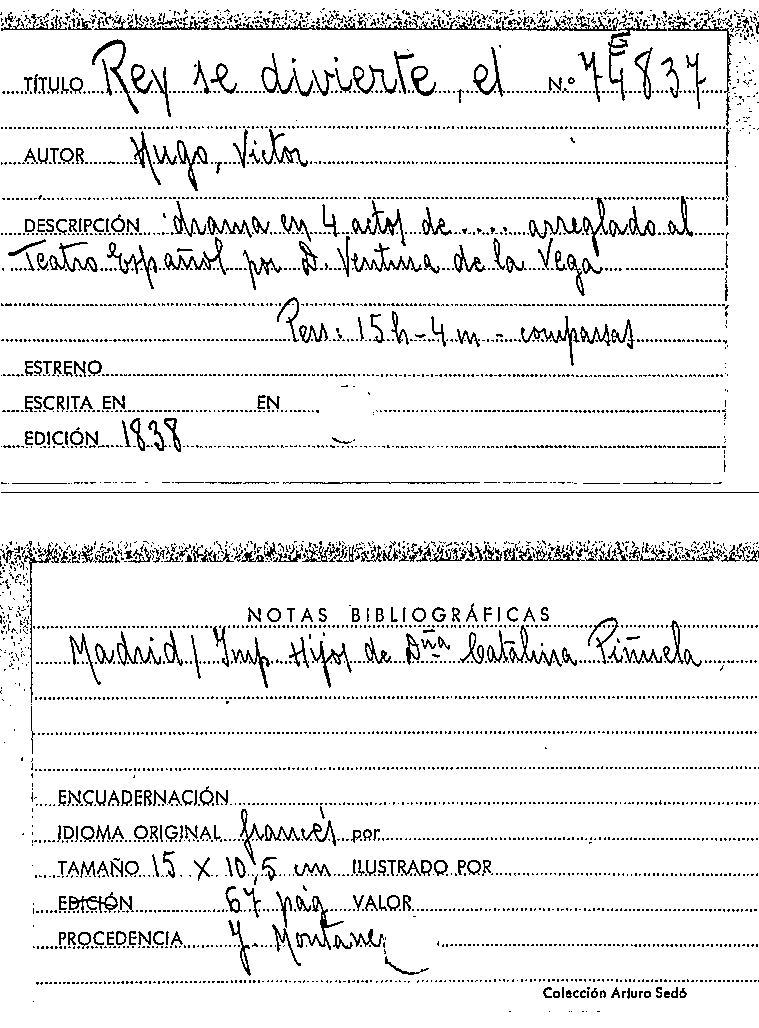 TÍTULO Rey se divierte, el N.º 74837
AUTOR Hugo, Victor
DESCRIPCIÓN drama en 4 actos de .... arreglado al
Teatro Español por D. Ventura de la Vega
Pers: 15 h - 4 m - comparsas
ESTRENO
ESCRITA EN EN
EDICIÓN 1838
NOTAS BIBLIOGRÁFICAS
Madrid / Imp Hijos de Dña Catalina Piñuela
ENCUADERNACIÓN
IDIOMA ORIGINAL francés por
TAMAÑO 15 X 10,5 cm ILUSTRADO POR
EDICIÓN 67 pág VALOR
PROCEDENCIA J. Montanez
Colección Arturo Sedó